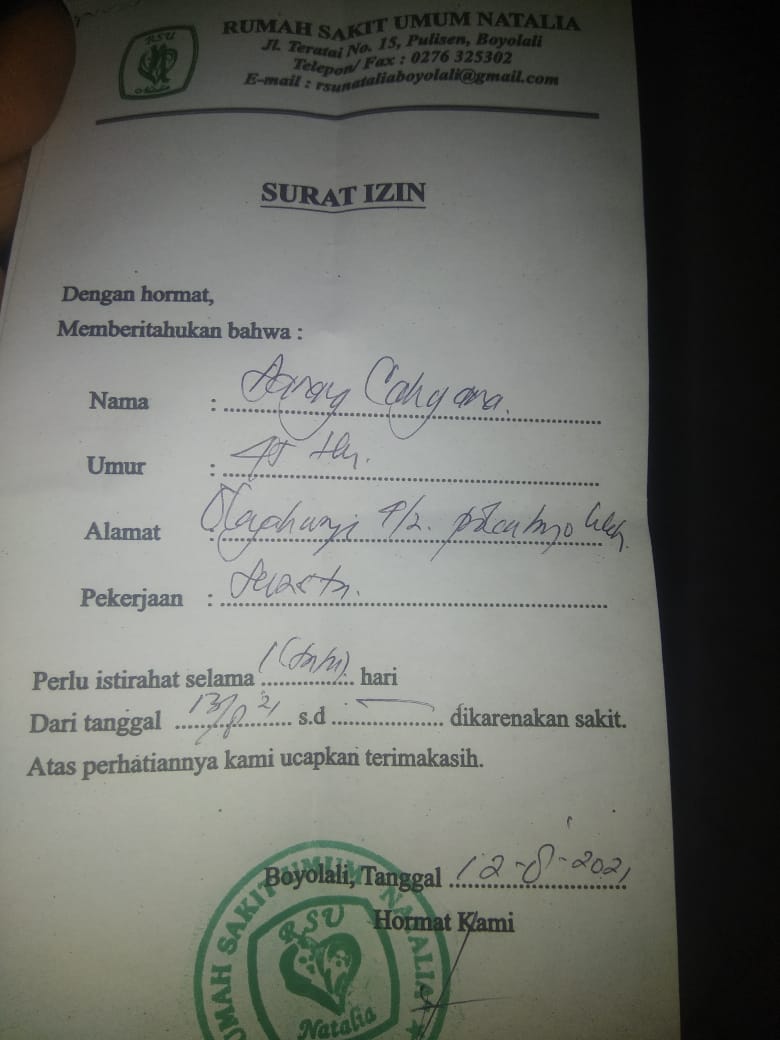 RSU
Natalia
RUMAH SAKIT UMUM NATALIA
Jl. Teratai No. 15, Pulisen, Boyolali
Telepon/ Fax : 0276 325302
E-mail : rsunataliaboyolali@gmail.com
SURAT IZIN
Dengan hormat,
Memberitahukan bahwa :
Nama : Cahyana.
Umur : Th.
Alamat :
Pekerjaan : swasta.
Perlu istirahat selama 1 (satu) hari
Dari tanggal 13/8 21 s.d — dikarenakan sakit.
Atas perhatiannya kami ucapkan terimakasih.
Boyolali, Tanggal 12-8-2021
Hormat Kami
RUMAH SAKIT UMUM NATALIA
RSU
Natalia